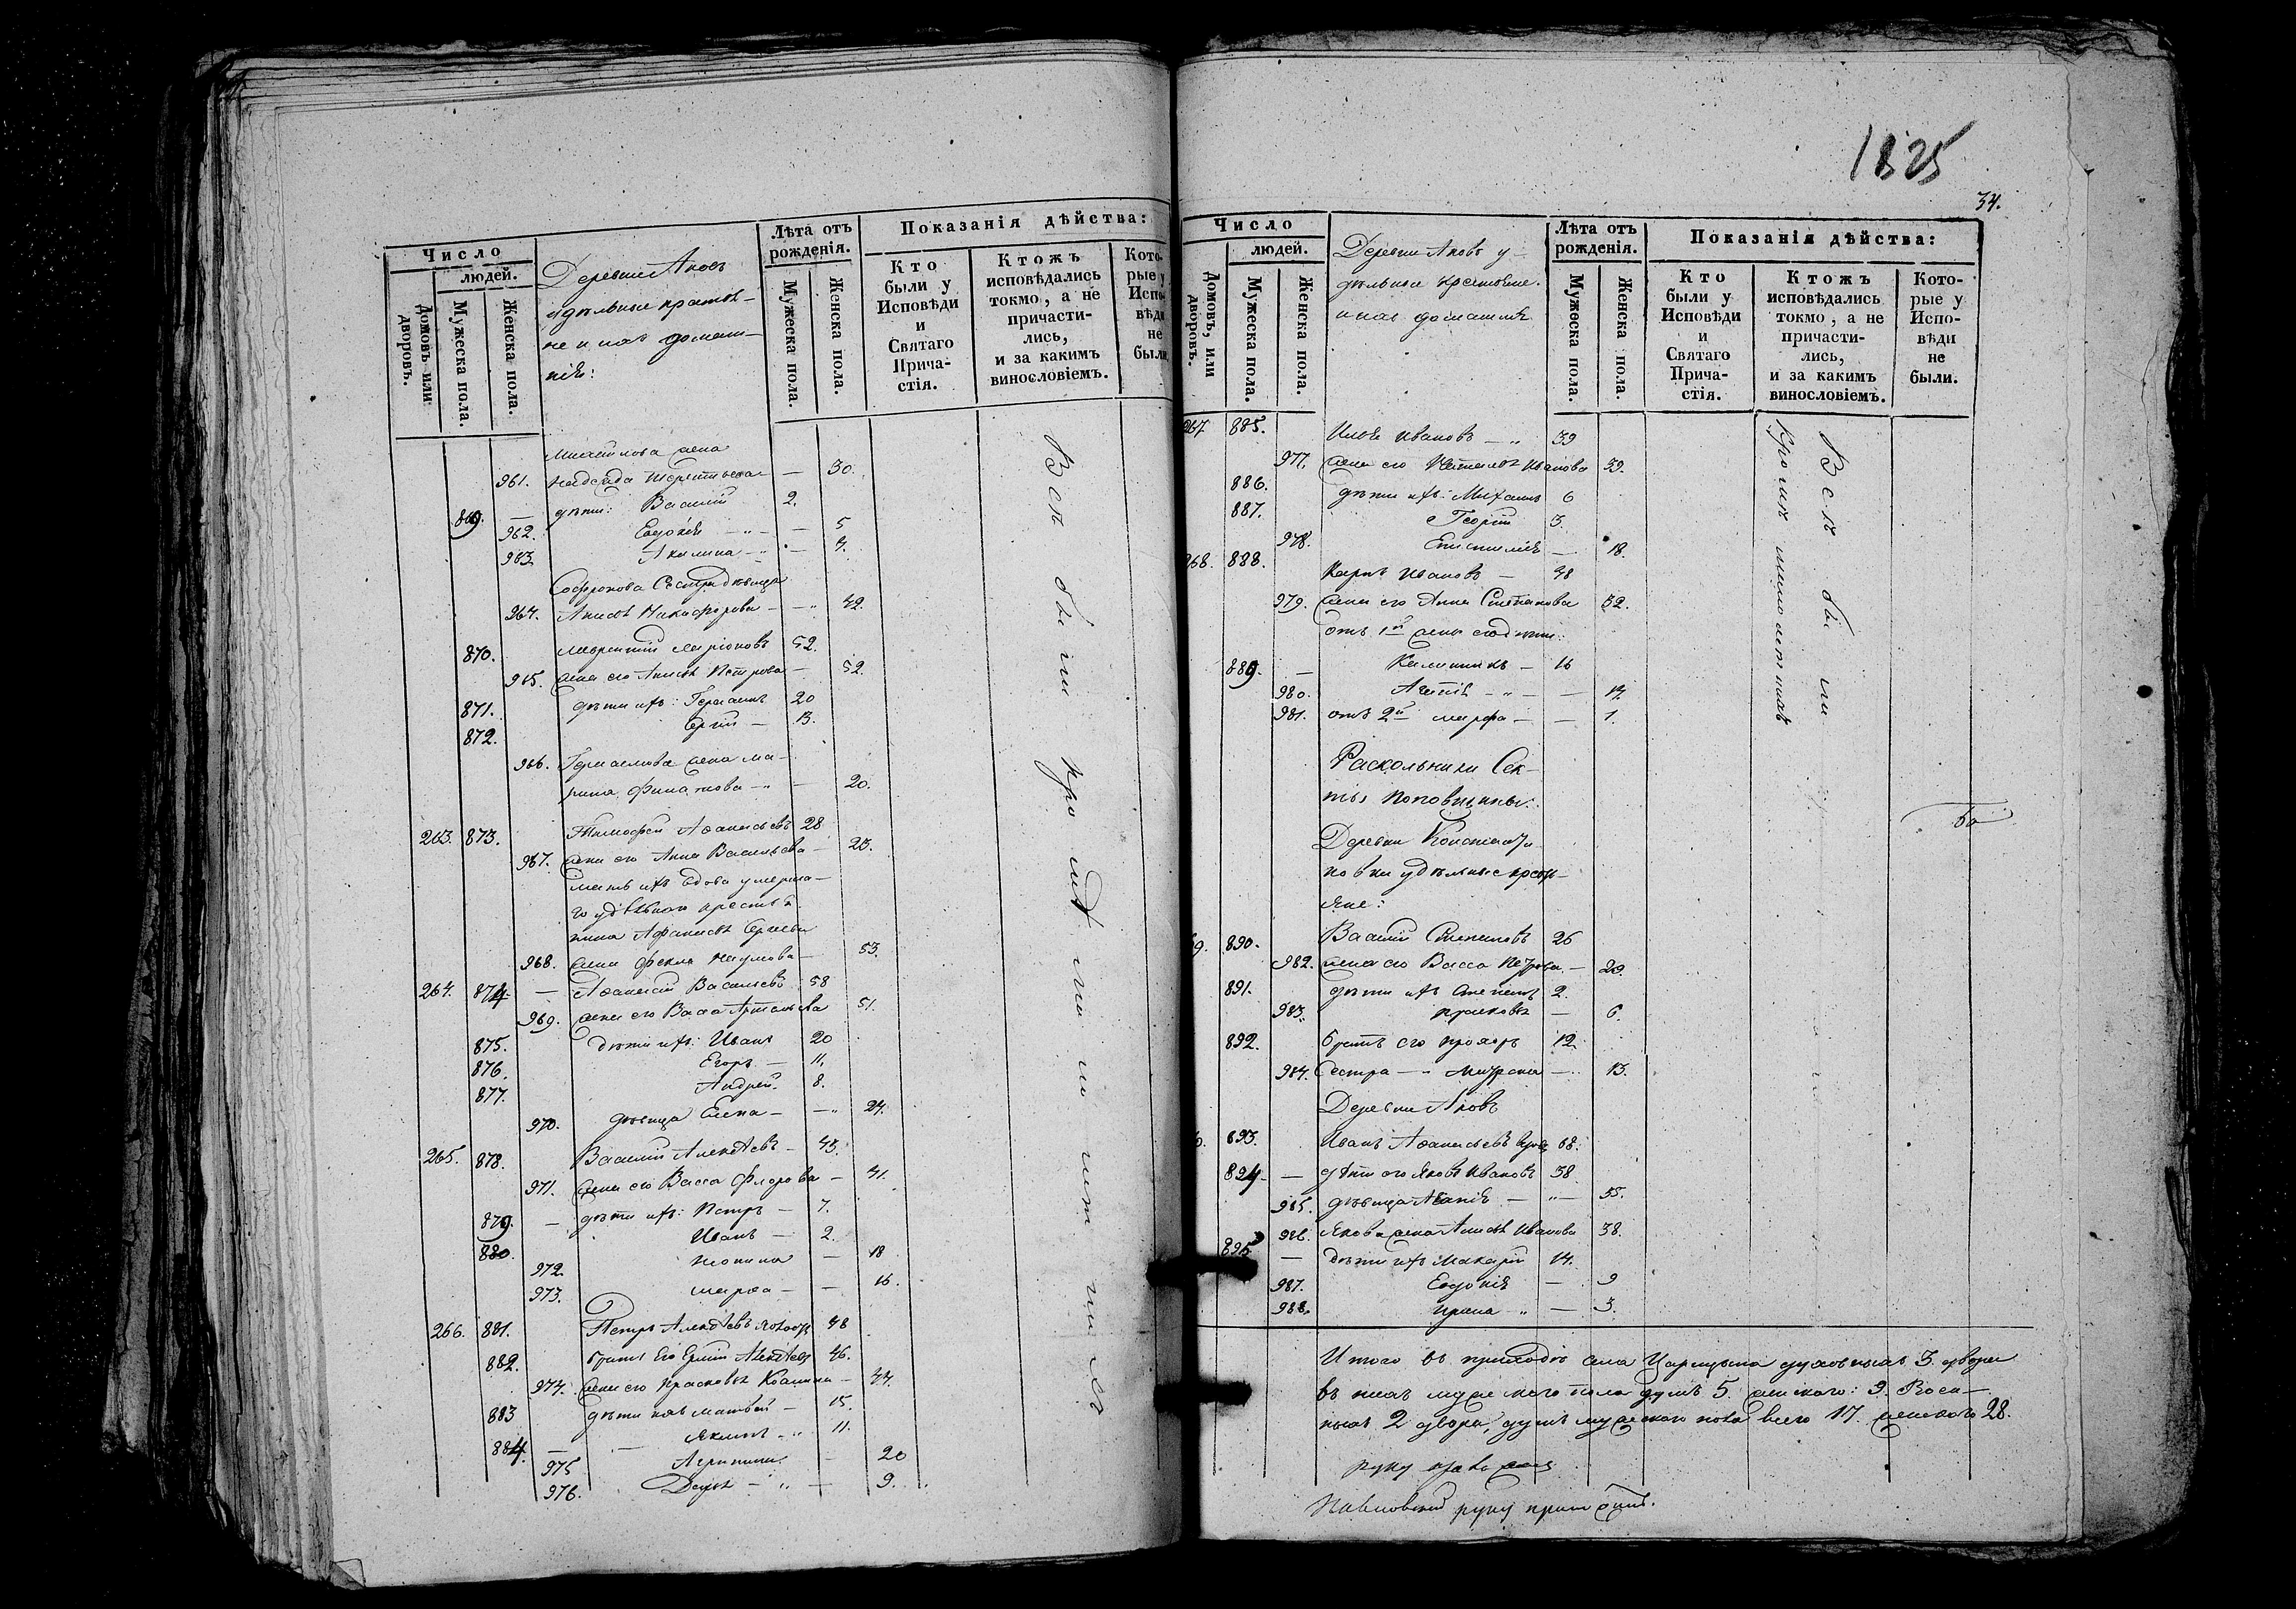 Число
людей.
Домовъ или дворовъ.
Мужеска пола.
Женска пола.
Деревни Аковъ
удѣльные крестья-
не и ихъ домаш-
нія:
Лѣта отъ
рожденія.
Мужеска пола.
Женска пола.
Показанія дѣйства:
Кто
были у
Исповѣди
и
Святаго
Прича-
стія.
Ктожъ
исповѣдались
токмо, а не
причасти-
лись,
и за какимъ
винословіемъ.
Кото-
рые у
Испо-
вѣди
не
были.
Михаилова жена
961. Надежда Терентьева — 30.
869. — дѣти: Василій 2.
962. Евдокія — 5
963. Акилина — 4.
Софронова Сестра дѣвица
964. Анисья Никифорова — 42.
870. Лаврентій Ларіоновъ 52.
965. жена его Анисья Петрова — 52.
871. дѣти ихъ: Герасимъ 20
872. Сергій — 13.
966. Герасимова жена Ма-
рина Филатова — 20.
263. 873. Тимофей Афанасьевъ 28
967. жена его Анна Васильева — 23.
мать ихъ вдова умерша-
го удѣльнаго крестья-
нина Афанасья Сергѣева
968. жена Фекла Наумова — 53.
264. 874. — Афанасій Васильевъ 58
969. жена его Васса Артемьева 51.
875. дѣти ихъ: Иванъ 20
876. Егоръ — 11.
877. Андрей 8.
970. дѣвица Елена — 24.
265. 878. Василій Алексѣевъ — 43.
971. жена его Васса Флорова — 41.
879. — дѣти ихъ: Петръ — 7.
880. Иванъ — 2.
972. — 18
973. Марфа — 16.
266. 881. Петръ Алексѣевъ 48
882. братъ Его Алексѣевъ 46.
974. жена его Прасковья — 44.
883 дѣти ихъ Матвѣй — 15.
884. — Якимъ 11.
975 Агрипина — 20
976. Дарья — 9.
Всѣ были кромѣ малолѣтнихъ
1825
34.
Число
людей.
Домовъ, или дворовъ.
Мужеска пола.
Женска пола.
Деревни Аковъ у-
дѣльные крестьяне
и ихъ домашнія
Лѣта отъ
рожденія.
Мужеска пола.
Женска пола.
Показанія дѣйства:
Кто
были у
Исповѣди
и
Святаго
Прича-
стія.
Ктожъ
исповѣдались
токмо, а не
причасти-
лись,
и за какимъ
винословіемъ.
Кото-
рые у
Испо-
вѣди
не
были.
267 885. Илья Ивановъ — 39
977. жена его Наталья Иванова 39.
886. дѣти ихъ: Михаилъ 6
887. Георгій 3.
978. Епистимія — 18.
268. 888. Карпъ Ивановъ — 48
979. жена его Анна Степанова 32.
отъ 1й жены его дѣти:
889. — Калинникъ — 16
980. Агапія — 14.
981. отъ 2й Марфа — 1.
Раскольники Сек-
ты Поповщины:
Деревни Константи-
новки удѣльные крестья-
яне:
890. Василій Степановъ 26
982. жена его Васса Петрова — 29.
891. дѣти ихъ Степанъ 2.
983. Прасковья — 6.
892. братъ его Прохоръ 12.
984. Сестра — Матрона — 13.
Деревни Аковъ
893. Иванъ Афанасьевъ 68.
894 — дѣти его Яковъ Ивановъ 38.
985. дѣвица — 35.
986. Якова жена Анисья Иванова 38.
895 — дѣти ихъ Макарій 14.
987. Евдокія — 9
988. Ирина — 3.
Всѣ были
Кромѣ малолѣтныхъ
Итого въ приходѣ села Царицына духовныхъ 3. двора
въ нихъ мужескаго пола душъ 5. женскаго: 9. Воен-
ныхъ 2 двора, душъ мужескаго пола всего 17. женскаго 28.
руку
руку приложилъ.